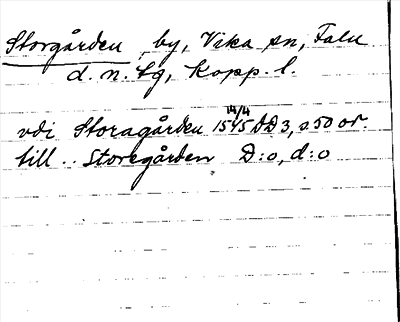 Storgården by, Vika sn, Falu
d. n. tg, Kopp. l.
14/4
vdi Storagården 1545 DD 3, s. 50 or.
till .. Storegården D:o, d:o